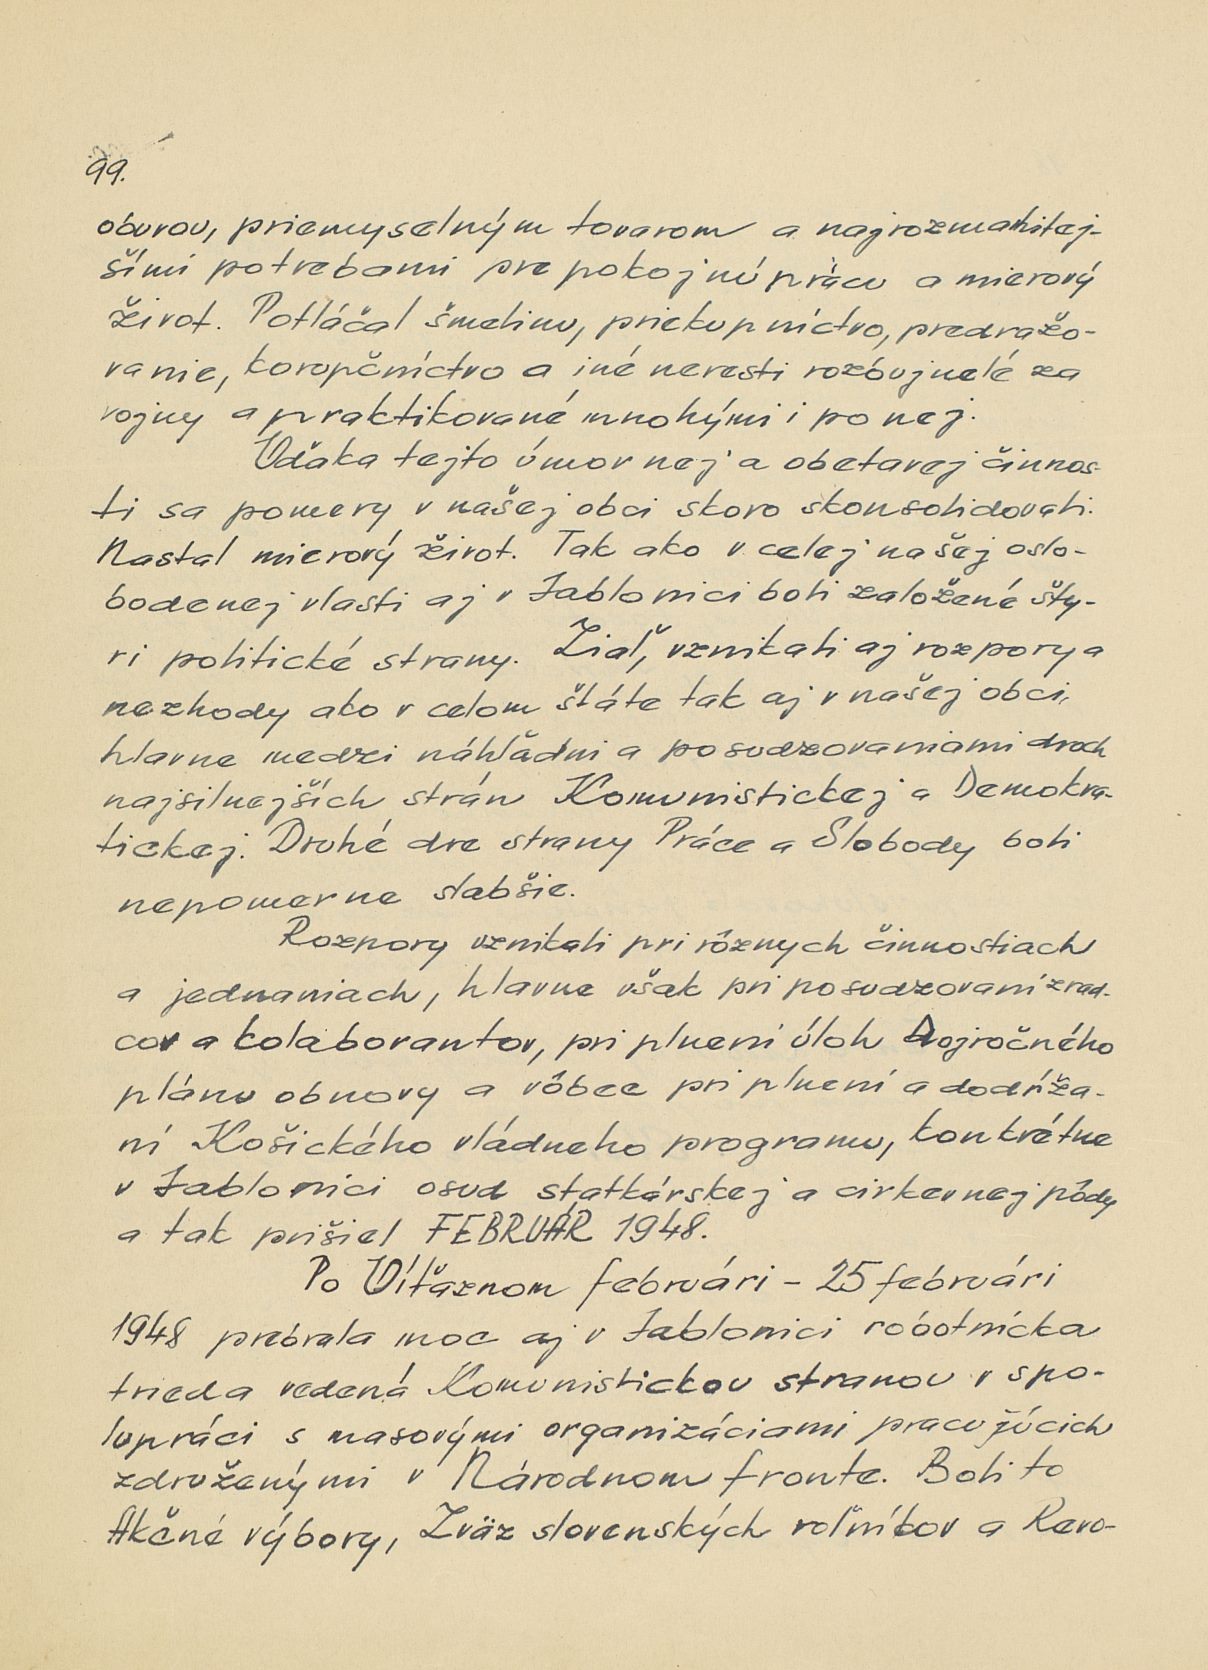 99.
obuvou, priemyselným tovarom a najrozmanitej-
šími potrebami pre pokojnú prácu a mierový
život. Potláčal šmelinu, priekupníctvo, predražo-
vanie, korupčníctvo a iné neresti rozbujnelé za
vojny a praktikované mnohými i po nej.
Vďaka tejto úmornej a obetavej činnos-
ti sa pomery v našej obci skoro skonsolidovali.
Nastal mierový život. Tak ako v celej našej oslo-
bodenej vlasti aj v Jablonici boli založené šty-
ri politické strany. Žiaľ, vznikali aj rozpory a
nezhody ako v celom štáte tak aj v našej obci,
hlavne medzi náhľadmi a posudzovaniami dvoch
najsilnejších strán Komunistickej a Demokra-
tickej. Druhé dve strany Práce a Slobody boli
nepomerne slabšie.
Rozpory vznikali pri rôznych činnostiach
a jednaniach, hlavne však pri posudzovaní zrad-
cov a kolaborantov, pri plnení úloh Dvojročného
plánu obnovy a vôbec pri plnení a dodrža-
ní Košického vládneho programu, konkrétne
v Jablonici osud statkárskej a cirkevnej pôdy
a tak prišiel FEBRUÁR 1948.
Po Víťaznom februári - 25 februári
1948 prebrala moc aj v Jablonici robotnícka
trieda vedená Komunistickou stranou v spo-
lupráci s masovými organizáciami pracujúcich
združenými v Národnom fronte. Boli to
Akčné výbory, Zväz slovenských roľníkov a Revo-